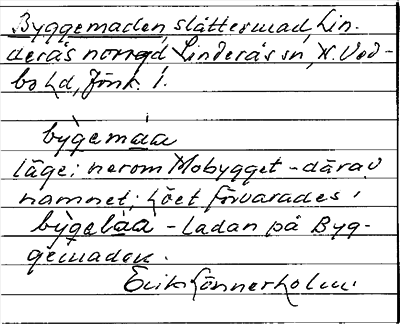 Byggemaden, slåttesmad, Lin-
derås norrgd Linderås sn, N. Ved-
bo hd, Jönk. l.
bỳgemàa
läge: nerom Mobygget - därav
namnet; höet förvarades i
bỳgelàa - ladan på Byg-
gemaden.
Erik Lönnerholm.